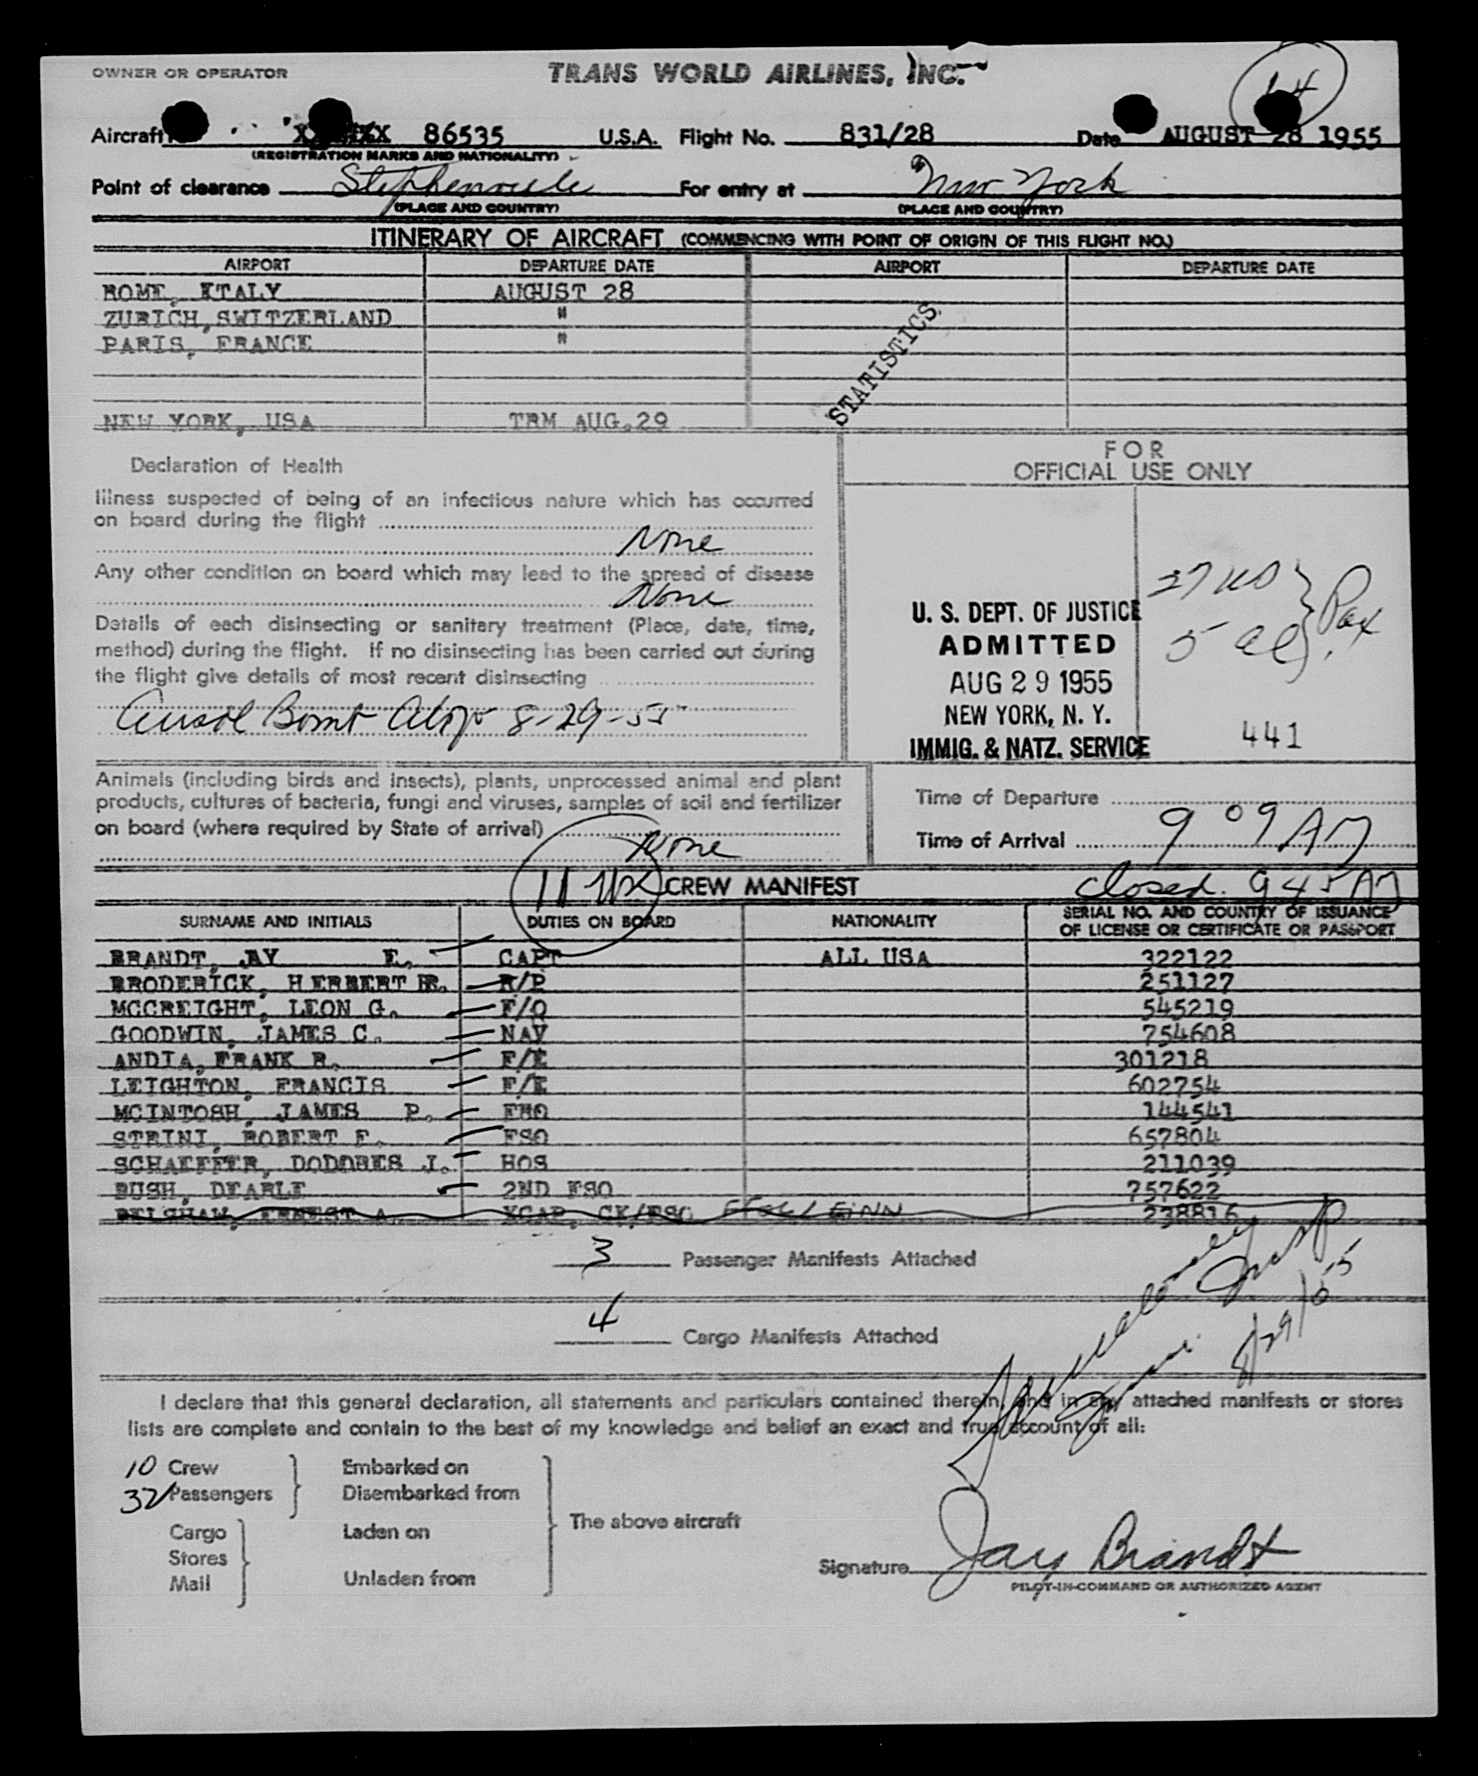 OWNER OR OPERATOR
TRANS WORLD AIRLINES, INC.
14
Aircraft 86535 U.S.A. Flight No. 831/28 Date AUGUST 28 1955
(REGISTRATION MARKS AND NATIONALITY)
Point of clearance Stephenville For entry at New York
(PLACE AND COUNTRY) (PLACE AND COUNTRY)
ITINERARY OF AIRCRAFT (COMMENCING WITH POINT OF ORIGIN OF THIS FLIGHT NO.)
AIRPORT DEPARTURE DATE AIRPORT DEPARTURE DATE
ROME, ITALY AUGUST 28
ZURICH, SWITZERLAND "
PARIS, FRANCE "
STATISTICS
NEW YORK, USA TRM AUG.29
Declaration of Health
Illness suspected of being of an infectious nature which has occurred
on board during the flight
None
Any other condition on board which may lead to the spread of disease
None
Details of each disinsecting or sanitary treatment (Place, date, time,
method) during the flight. If no disinsecting has been carried out during
the flight give details of most recent disinsecting
8-29-55
FOR
OFFICIAL USE ONLY
27 US
5 al } Pax
U. S. DEPT. OF JUSTICE
ADMITTED
AUG 29 1955
NEW YORK, N. Y.
IMMIG. & NATZ. SERVICE
441
Animals (including birds and insects), plants, unprocessed animal and plant
products, cultures of bacteria, fungi and viruses, samples of soil and fertilizer
on board (where required by State of arrival)
None
Time of Departure
Time of Arrival 9 09 AM
closed. 9 45 AM
11 CREW MANIFEST
SURNAME AND INITIALS DUTIES ON BOARD NATIONALITY SERIAL NO. AND COUNTRY OF ISSUANCE
OF LICENSE OR CERTIFICATE OR PASSPORT
BRANDT, JAY E. CAPT ALL USA 322122
BRODERICK, HERBERT R. R/P 251127
MCCREIGHT, LEON G. F/O 545219
GOODWIN, JAMES C. NAV 754608
ANDIA, FRANK R. F/E 301218
LEIGHTON, FRANCIS F/E 602754
MCINTOSH, JAMES P. FRO 144541
STRINI, ROBERT F. FSO 657804
SCHAEFFER, DODORES J. HOS 211039
BUSH, DEARLE 2ND FSO 757622
BELSHAW, ERNEST A. XCAP, CK/FSO 238816
3 Passenger Manifests Attached
4 Cargo Manifests Attached
8/29/55
I declare that this general declaration, all statements and particulars contained therein, and in any attached manifests or stores
lists are complete and contain to the best of my knowledge and belief an exact and true account of all:
10 Crew
32 Passengers
Cargo
Stores
Mail
Embarked on
Disembarked from
Laden on
Unladen from
The above aircraft
Signature Jay Brandt
PILOT-IN-COMMAND OR AUTHORIZED AGENT